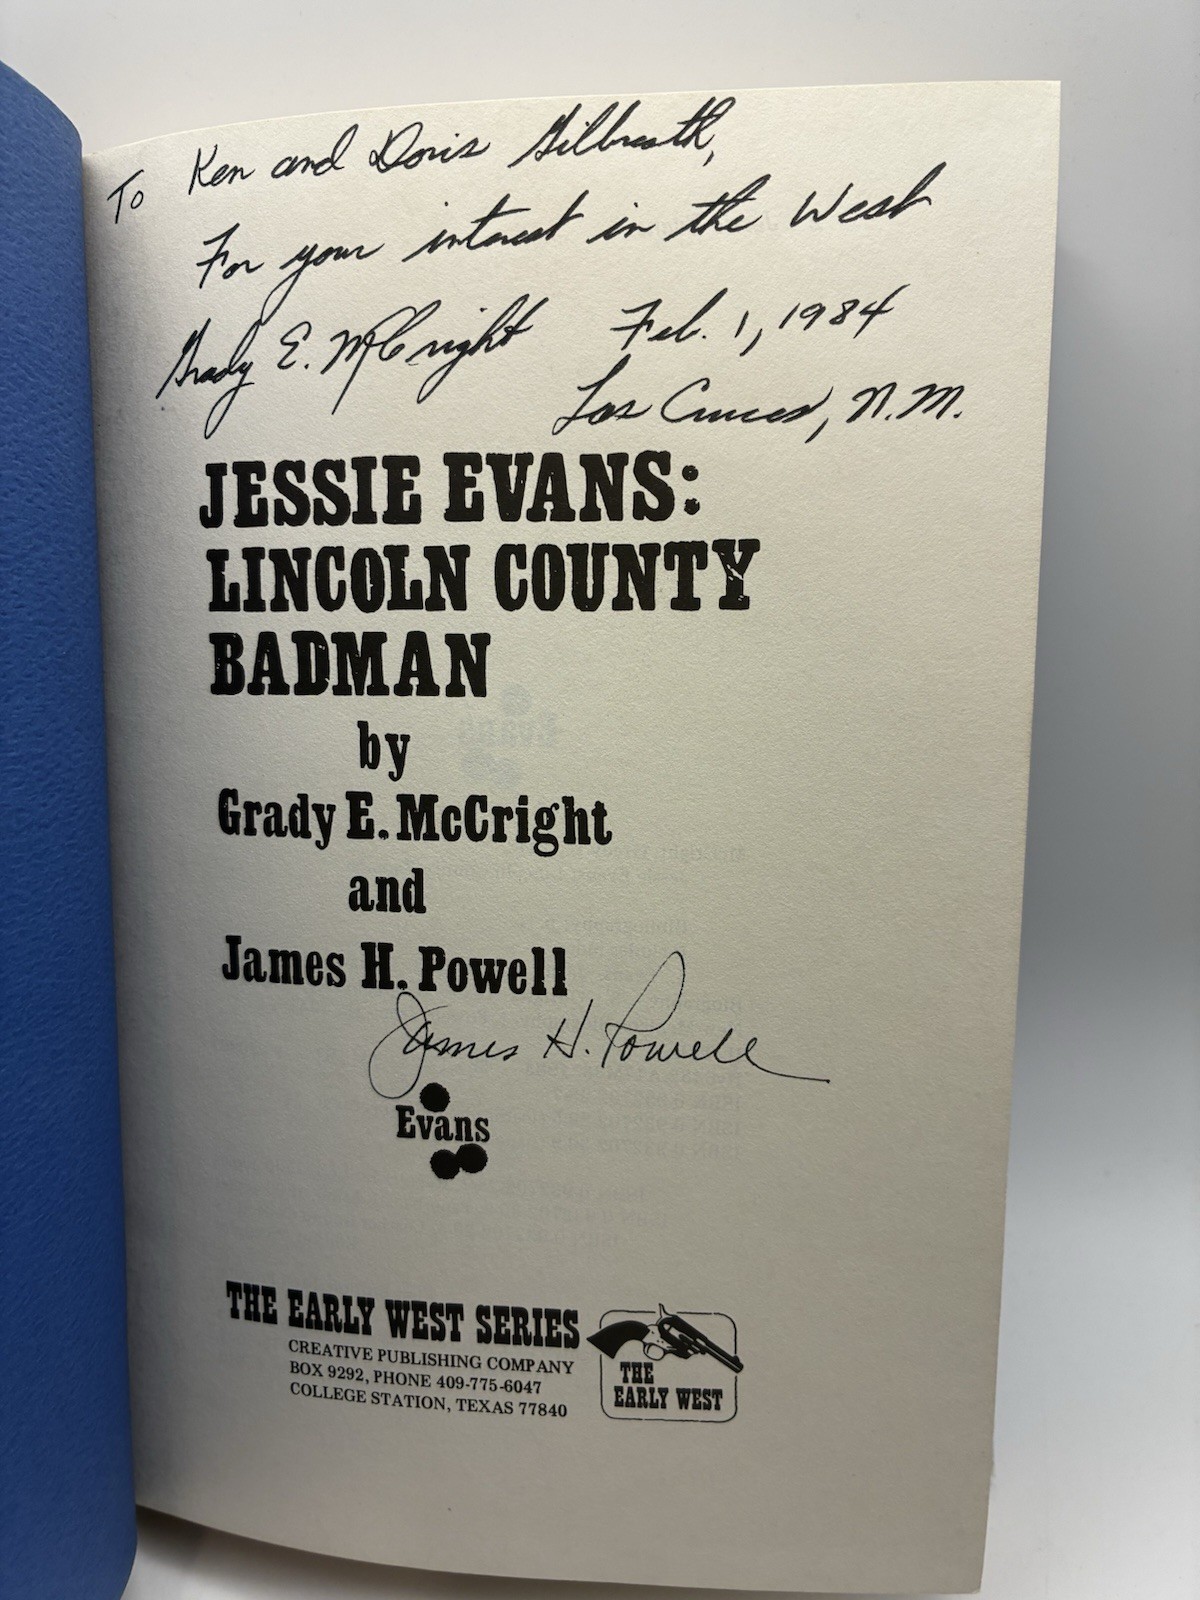 To Ken and Doris Gilbreath,
For your interest in the West
Grady E. McCright Feb. 1, 1984
Las Cruces, N.M.
JESSIE EVANS:
LINCOLN COUNTY
BADMAN
by
Grady E. McCright
and
James H. Powell
James H. Powell
Evans
THE EARLY WEST SERIES
CREATIVE PUBLISHING COMPANY
BOX 9292, PHONE 409-775-6047
COLLEGE STATION, TEXAS 77840
THE
EARLY WEST